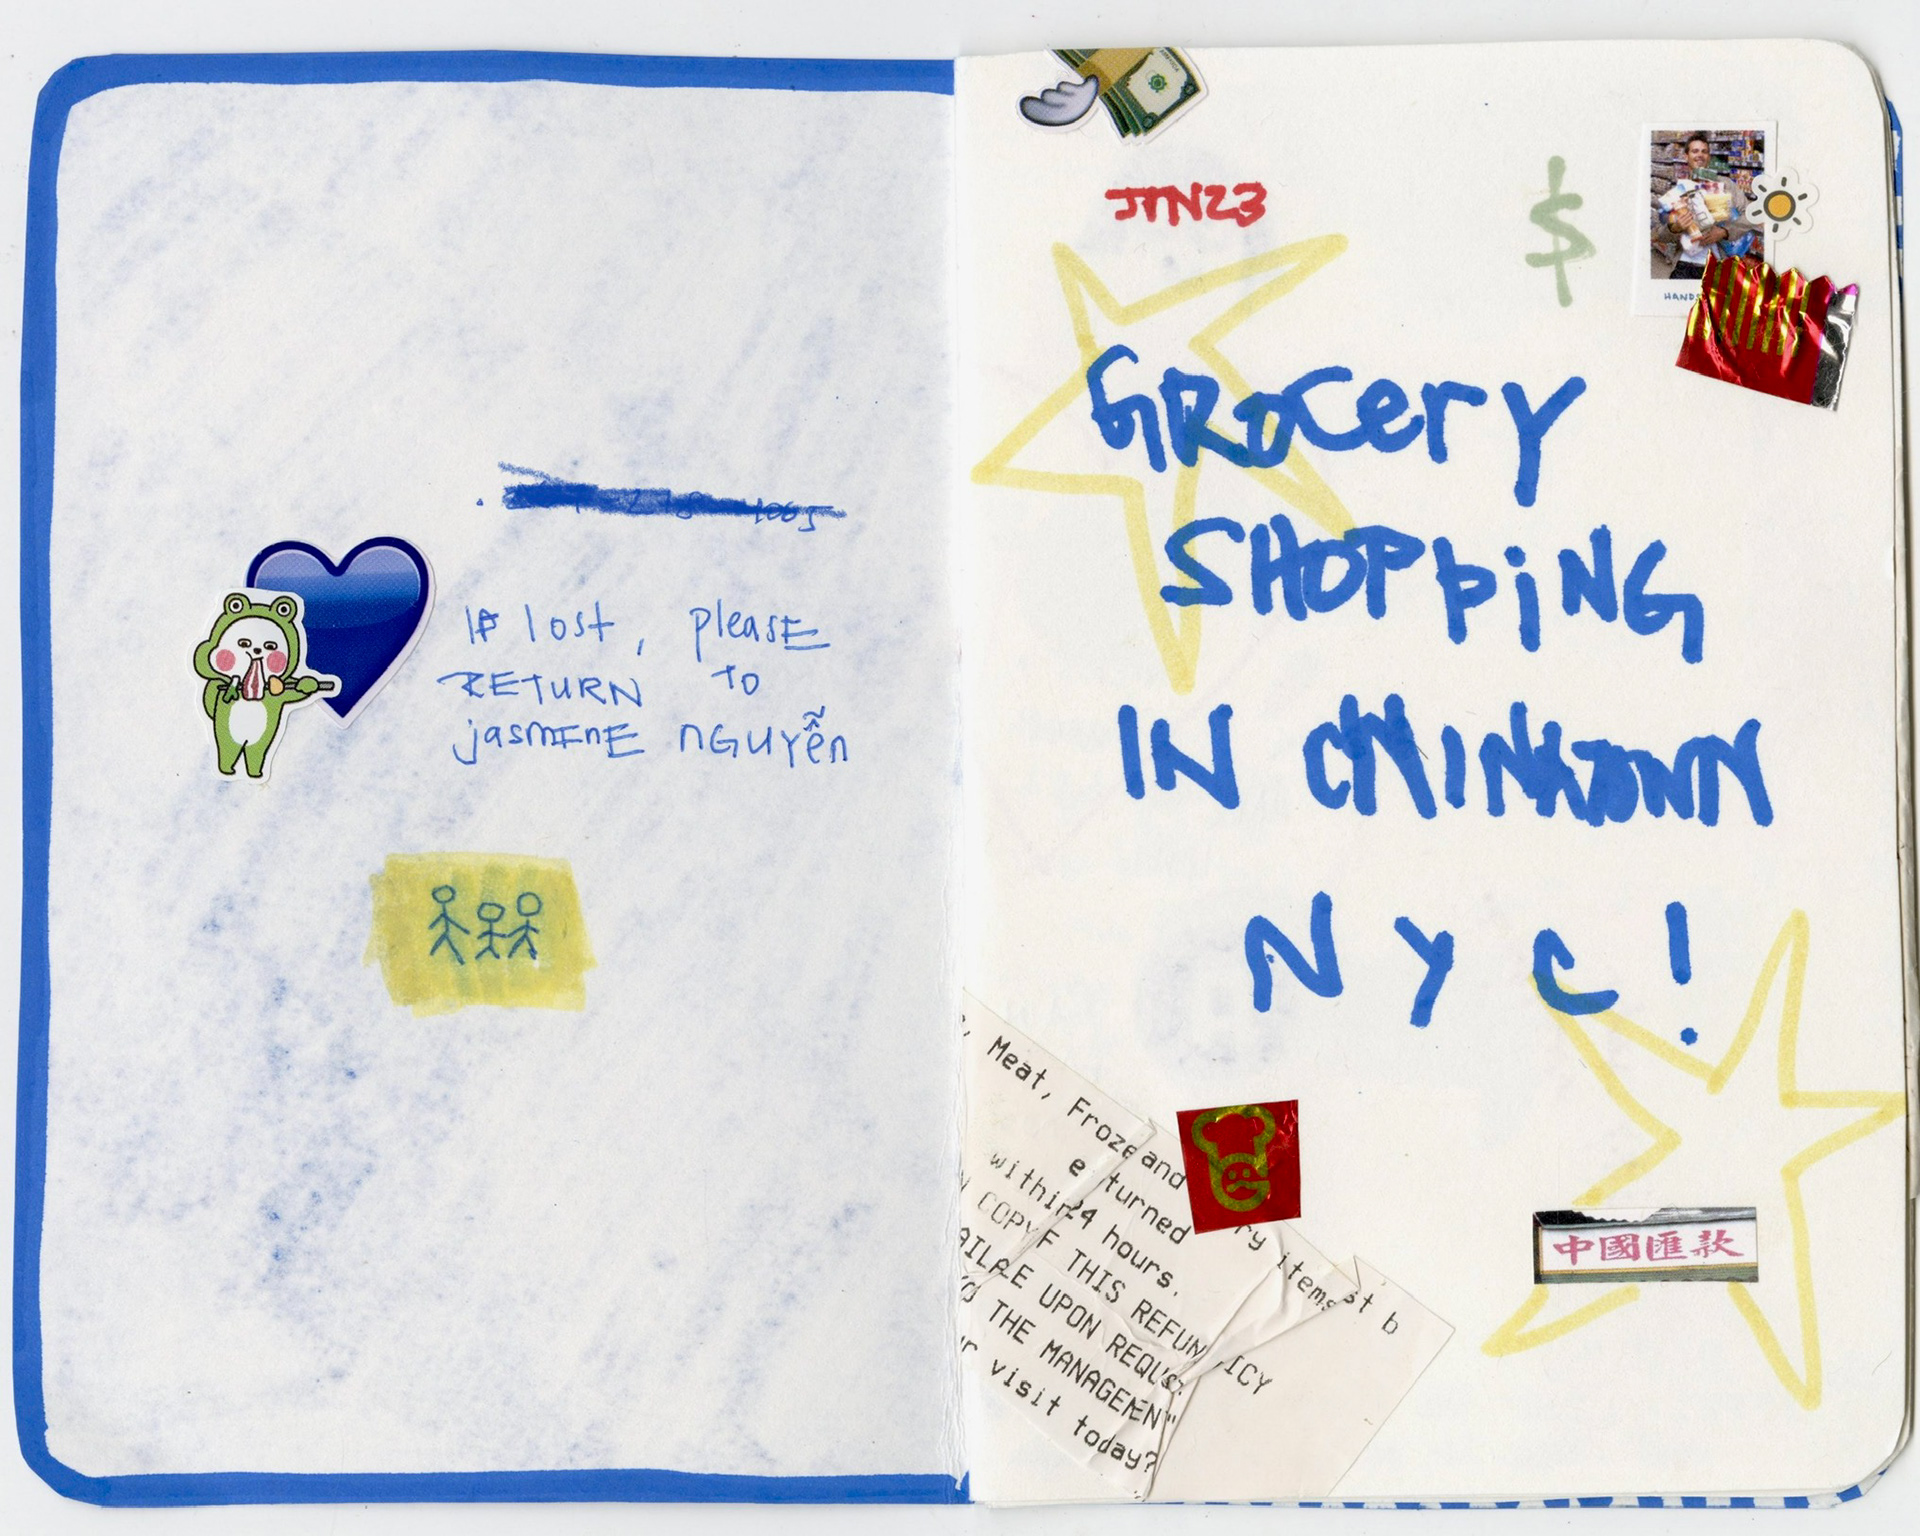 If lost, please
RETURN to
jasmine nguyễn
JAN23
$
HANDS
GROCERY
SHOPPING
IN CHINATOWN
NYC!
Meat, Froze and
e turned ry items st b
within 24 hours.
COPY F THIS REFUN ICY
AILAE UPON REQUS
THE MANAGEMEN"
r visit today?
中國匯款